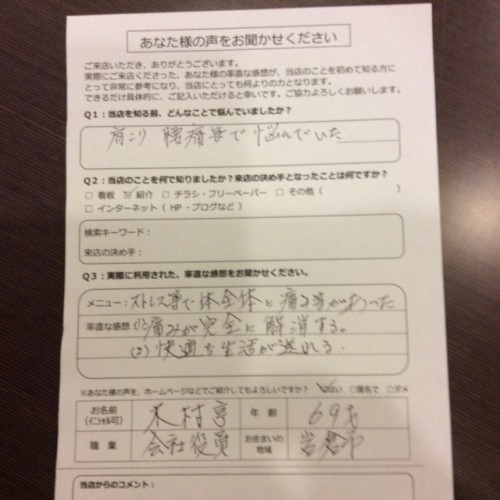 あなた様の声をお聞かせください
ご来店いただき、ありがとうございます。
実際にご来店くださった、あなた様の率直な感想が、当店のことを初めて知る方に
とって非常に参考になり、当店にとっても何よりの力となります。
できるだけ具体的に、ご記入いただけると幸いです。ご協力よろしくお願いします。
Q1：当店を知る前、どんなことで悩んでいましたか？
肩こり 腰痛等で悩んでいた
Q2：当店のことを何で知りましたか？来店の決め手となったことは何ですか？
□ 看板 ☑ 紹介 □ チラシ・フリーペーパー □ その他（ ）
□ インターネット（HP・ブログなど）
検索キーワード：
来店の決め手：
Q3：実際に利用された、率直な感想をお聞かせください。
メニュー：ストレス等で体全体に痛み等があった
率直な感想 (1)痛みが完全に解消する。
(2)快適な生活が送れる。
※あなた様の声を、ホームページなどでご紹介してもよろしいですか？ ☑はい □匿名で □ダメ
お名前 木村亨 年齢 69才
(イニシャル可)
職業 会社役員 お住まいの 岩倉市
地域
当店からのコメント：